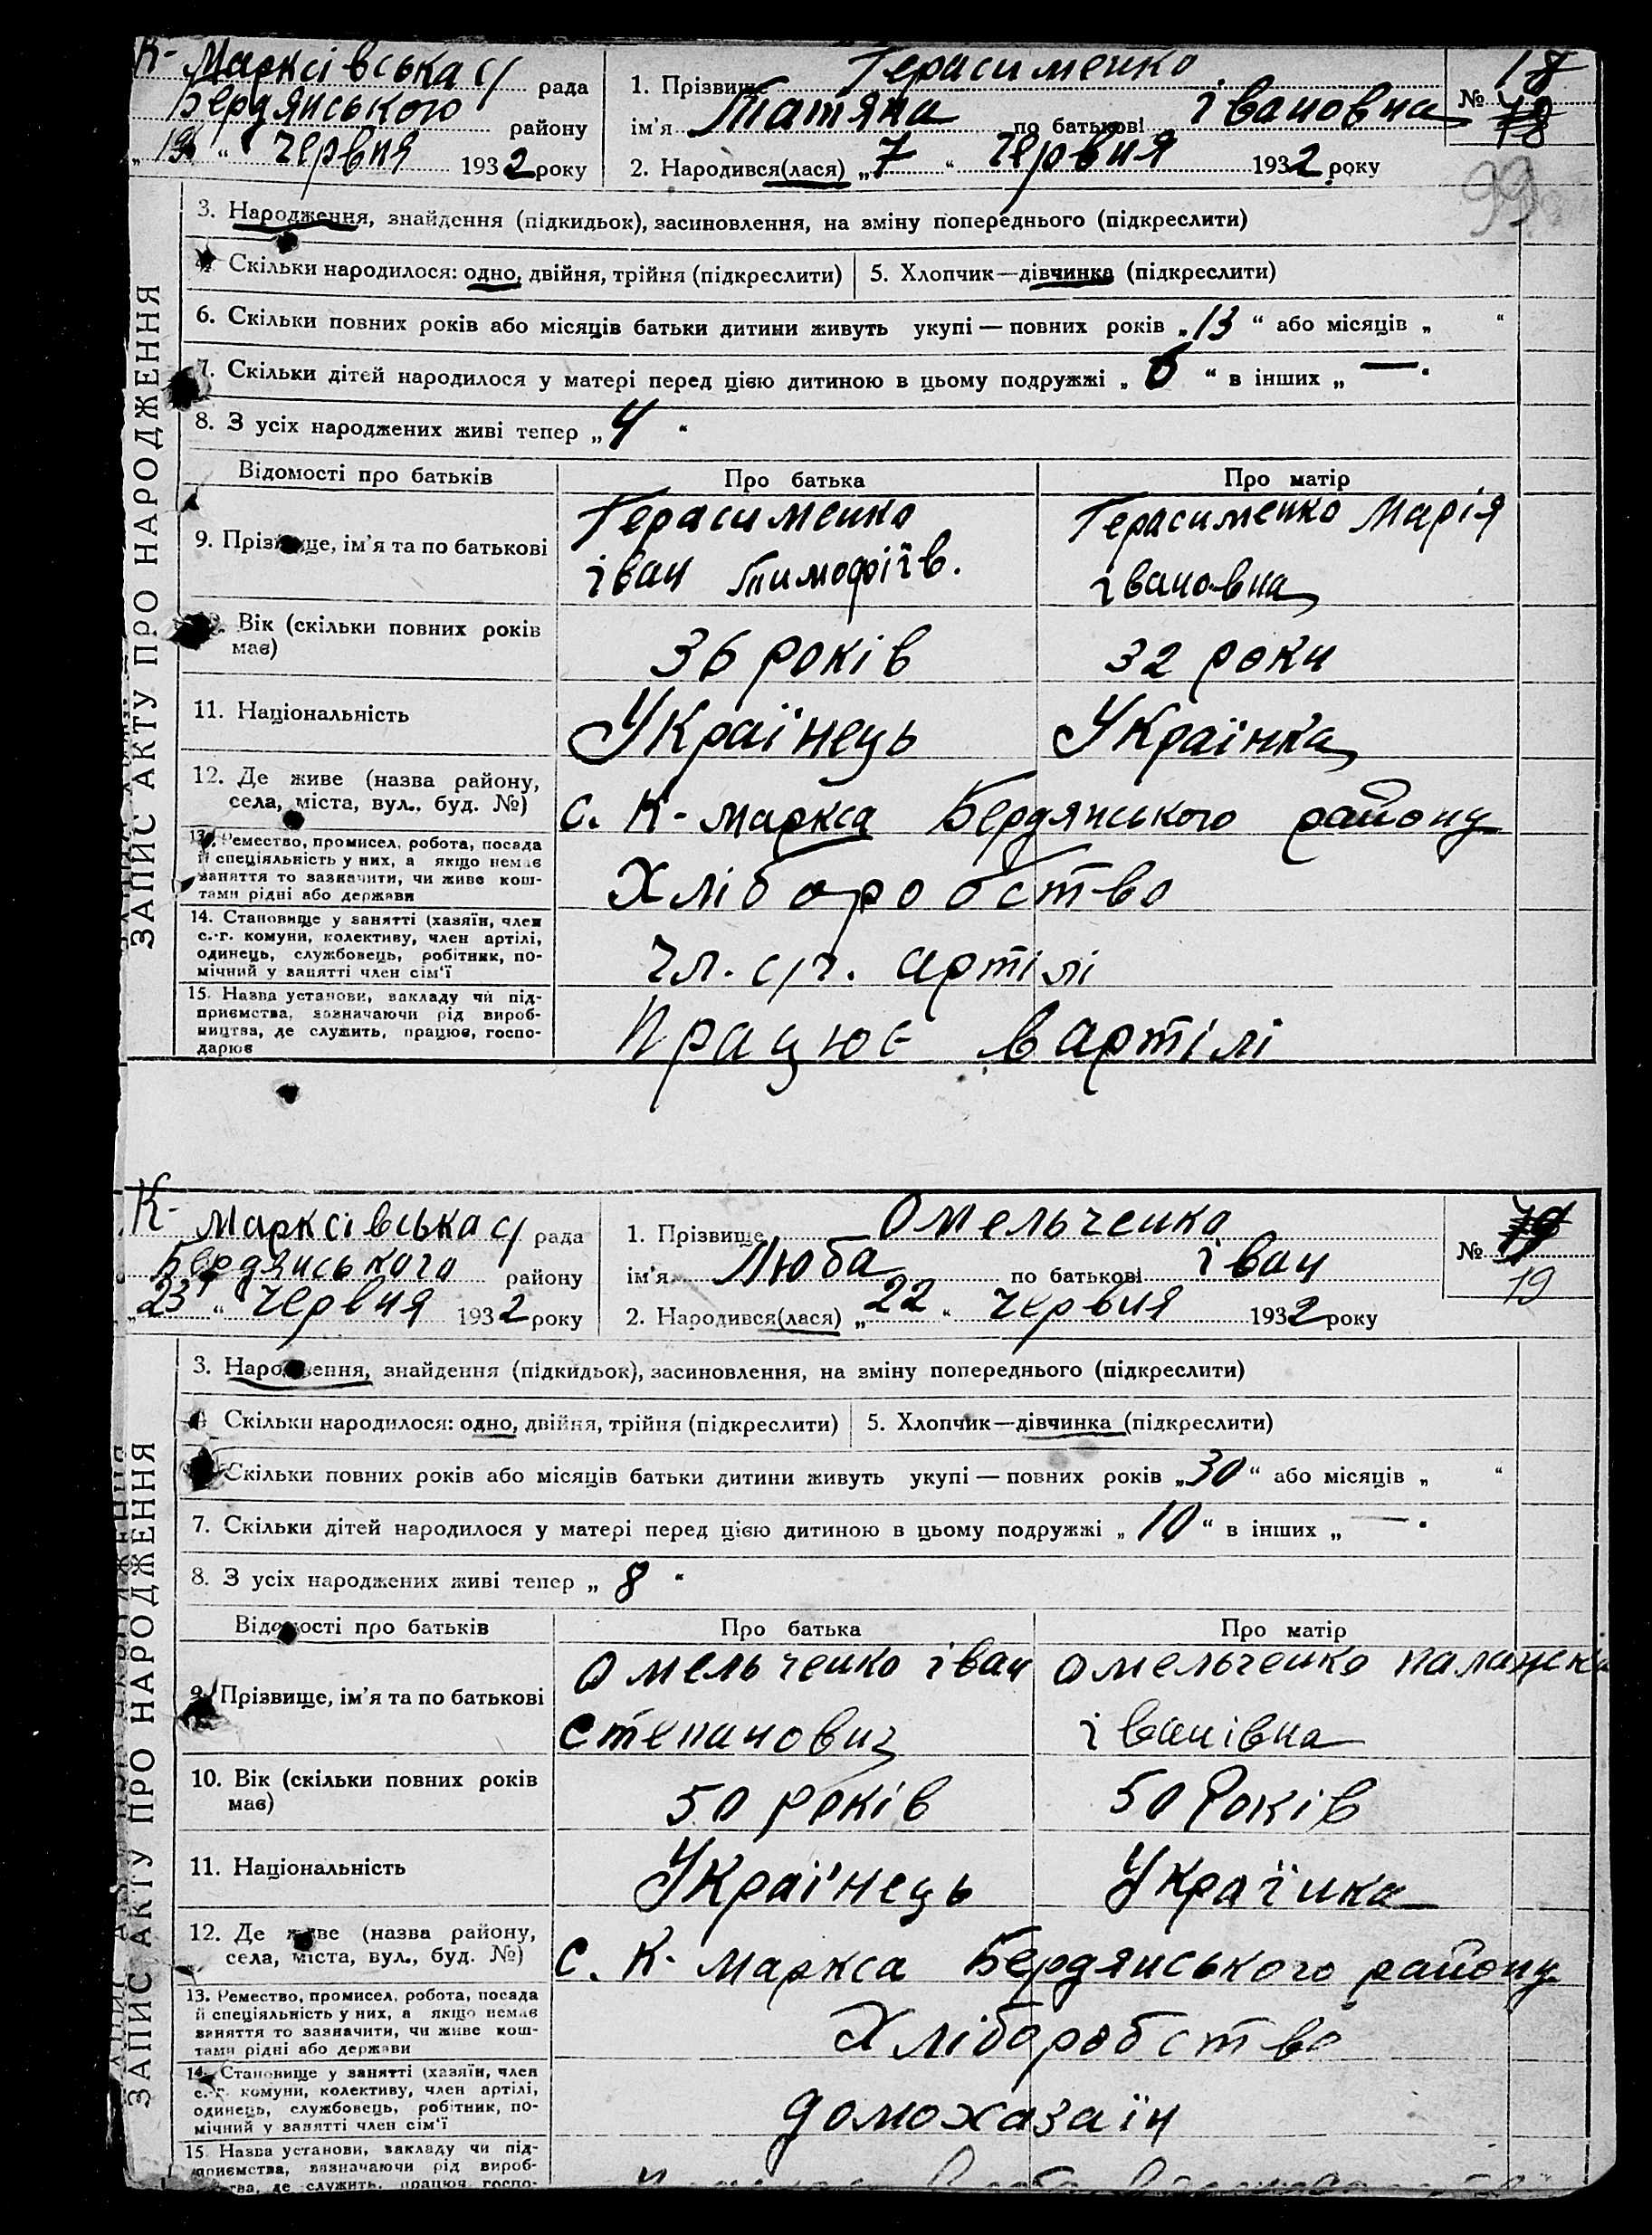 К-Марксівська с/ рада
Бердянського району
„19“ Червня 1932 року
1. Прізвище Герасименко
ім'я Татяна по батькові івановна
2. Народився(лася) „7“ Червня 1932 року
№ 18
78
99
ЗАПИС АКТУ ПРО НАРОДЖЕННЯ
3. Народження, знайдення (підкидьок), засиновлення, на зміну попереднього (підкреслити)
4. Скільки народилося: одно, двійня, трійня (підкреслити)
5. Хлопчик—дівчинка (підкреслити)
6. Скільки повних років або місяців батьки дитини живуть укупі — повних років „13“ або місяців „ “
7. Скільки дітей народилося у матері перед цією дитиною в цьому подружжі „6“ в інших „—“
8. З усіх народжених живі тепер „4“
Відомості про батьків Про батька Про матір
9. Прізвище, ім'я та по батькові
Герасименко Герасименко Марія
іван Тимофіїв. івановна
10. Вік (скільки повних років
має)
36 років 32 роки
11. Національність Українець Українка
12. Де живе (назва району,
села, міста, вул., буд. №)
с. К-маркса Бердянського району
13. Ремество, промисел, робота, посада
й спеціяльність у них, а якщо немає
заняття то зазначити, чи живе кош-
тами рідні або держави
Хліборобство
14. Становище у занятті (хазяїн, член
с.-г. комуни, колективу, член артілі,
одинець, службовець, робітник, по-
мічний у занятті член сім'ї
чл. с/г. артілі
15. Назва установи, закладу чи під-
приємства, зазначаючи рід вироб-
ництва, де служить, працює, госпо-
дарює
Працює в артілі
К-Марксівська с/ рада
Бердянського району
„23“ Червня 1932 року
1. Прізвище Омельченко
ім'я Люба по батькові іван
2. Народився(лася) „22“ Червня 1932 року
№ 79
19
ЗАПИС АКТУ ПРО НАРОДЖЕННЯ
3. Народження, знайдення (підкидьок), засиновлення, на зміну попереднього (підкреслити)
4. Скільки народилося: одно, двійня, трійня (підкреслити)
5. Хлопчик—дівчинка (підкреслити)
Скільки повних років або місяців батьки дитини живуть укупі — повних років „30“ або місяців „ “
7. Скільки дітей народилося у матері перед цією дитиною в цьому подружжі „10“ в інших „—“
8. З усіх народжених живі тепер „8“
Відомості про батьків Про батька Про матір
9. Прізвище, ім'я та по батькові
Омельченко іван Омельченко
Степанович іванівна
10. Вік (скільки повних років
має)
50 років 50 Років
11. Національність Українець Українка
12. Де живе (назва району,
села, міста, вул., буд. №)
с. К-Маркса Бердянського району
13. Ремество, промисел, робота, посада
й спеціяльність у них, а якщо немає
заняття то зазначити, чи живе кош-
тами рідні або держави
Хліборобство
14. Становище у занятті (хазяїн, член
с.-г. комуни, колективу, член артілі,
одинець, службовець, робітник, по-
мічний у занятті член сім'ї
домохазаїн
15. Назва установи, закладу чи під-
приємства, зазначаючи рід вироб-
ництва, де служить, працює, госпо-